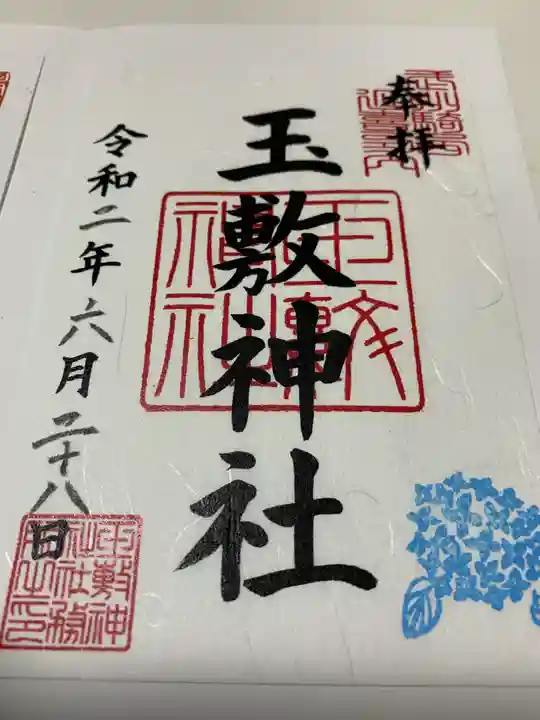 奉拝
玉敷神社
令和二年六月二十八日
玉敷神社
玉敷神
社社務
所之印